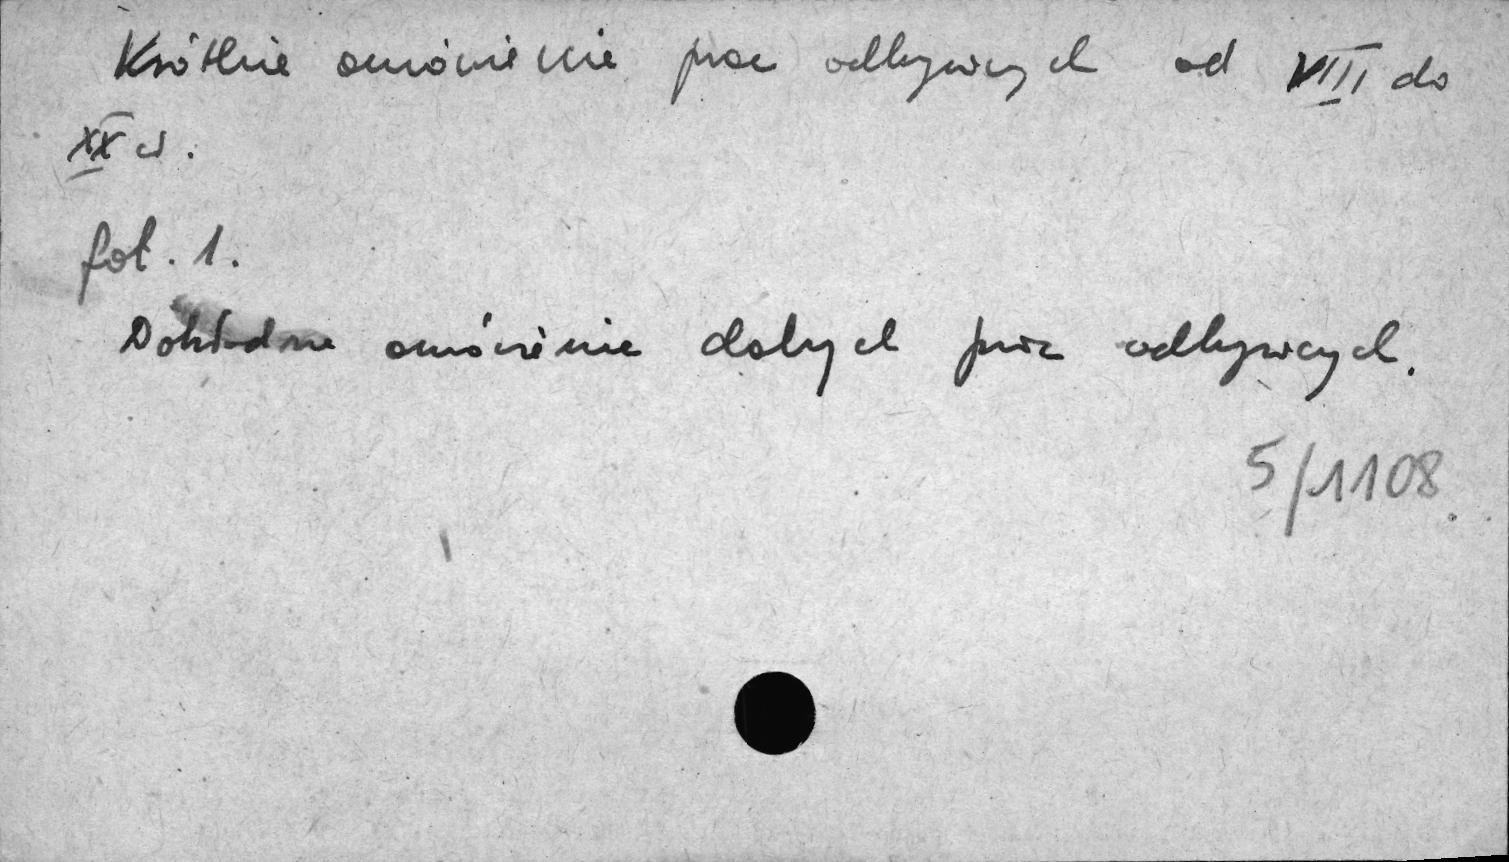 Krótkie omówienie prac odkrywczych od VIII do
XX w.
fot. 1.
Dokładne omówienie prac odkrywczych.
5/1108